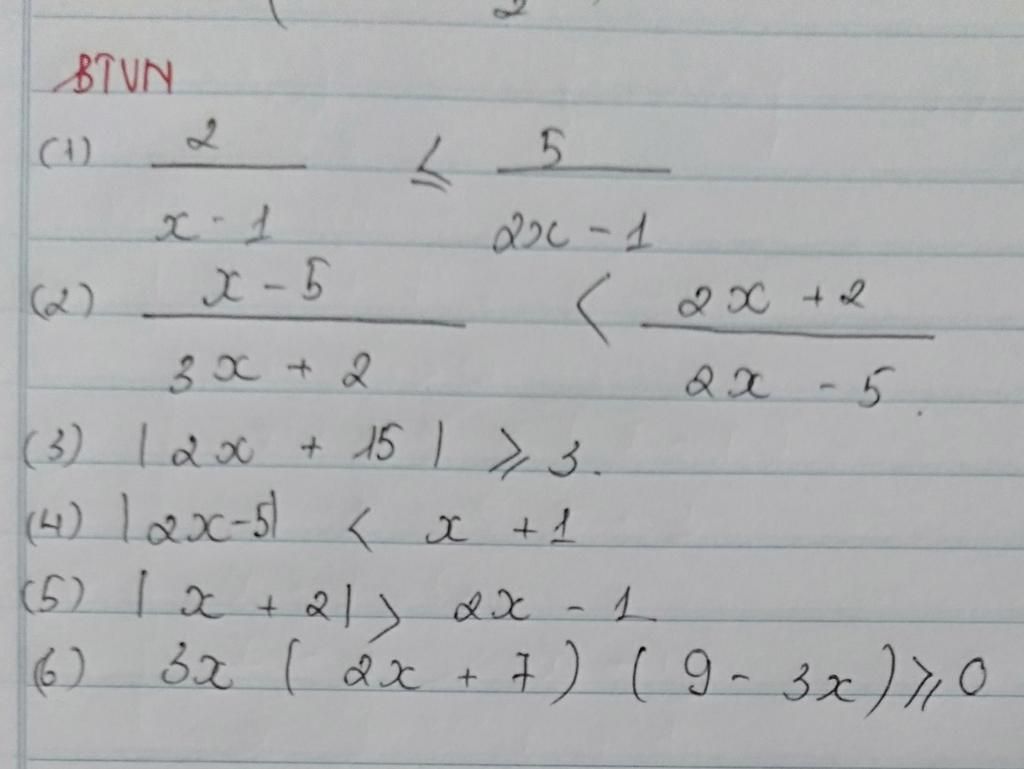 2
BTVN
(1) 2/(x - 1) ≤ 5/(2x - 1)
(2) (x - 5)/(3x + 2) < (2x + 2)/(2x - 5).
(3) |2x + 15| ≥ 3.
(4) |2x-5| < x + 1
(5) |x + 2| > 2x - 1
(6) 3x (2x + 7) (9 - 3x) ≥ 0